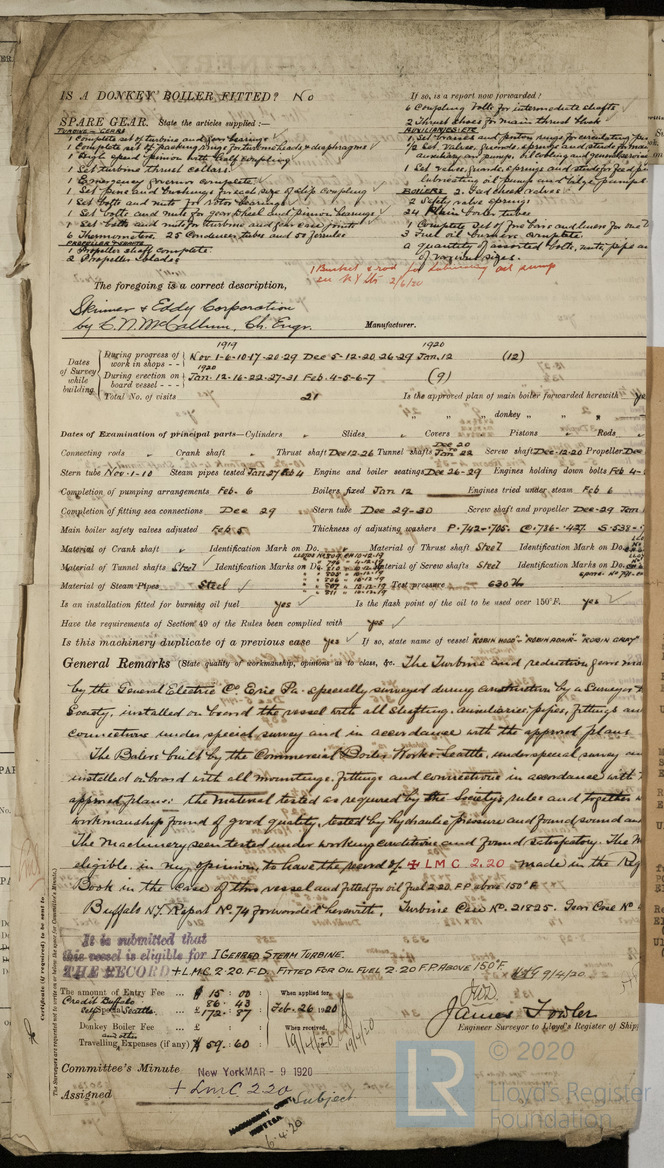 IS A DONKEY BOILER FITTED? No
If so, is a report now forwarded?
SPARE GEAR. State the articles supplied:—
TURBINE & GEARS
1 Complete set of turbine and gear bearings
1 Complete set of packing rings for turbine heads & diaphragms
1 High speed pinion with half coupling
1 Set turbine thrust collars
1 Emergency governor complete
1 Set pins and bushings for each size of slip coupling
1 Set bolts and nuts for rotor bearings
1 Set bolts and nuts for gear wheel and pinion bearings
1 Set bolts and nuts for turbine and gear case joints
6 Thermometers. 25 Condenser tubes and 50 ferrules
1 Propeller shaft complete
2 Propeller blades
6 Coupling bolts for intermediate shafts
2 Thrust shoes for main thrust block
AUXILIARIES ETC
1 Set valves, guards, springs and studs for feed
BOILERS 2 Feed check valves
2 Safety valve springs
24 Plain boiler tubes
3 Fuel oil burners complete
a quantity of assorted bolts, nuts, pipe
of various sizes.
1 Bucket & rod for lubricating oil pump
2/6/20
The foregoing is a correct description,
Skinner & Eddy Corporation
by C. N. McCallum, Ch. Engr. Manufacturer.
Dates of Survey while building
1919 1920
During progress of work in shops - - Nov. 1-6-10-17-20-29 Dec 5-12-20-26-29 Jan. 12 (12)
1920
During erection on board vessel - - - Jan. 12-16-22-27-31 Feb. 4-5-6-7 (9)
Total No. of visits 21 Is the approved plan of main boiler forwarded herewith
" " " donkey " " "
Dates of Examination of principal parts—Cylinders Slides Covers Pistons Rods
Connecting rods Crank shaft Thrust shaft Dec 12-26 Tunnel shafts Dec 20 Jan 22 Screw shaft Dec. 12-20 Propeller Dec
Stern tube Nov. 1-10 Steam pipes tested Jan 27 Feb 4 Engine and boiler seatings Dec 26-29 Engines holding down bolts Feb 4-
Completion of pumping arrangements Feb. 6 Boilers fixed Jan 12 Engines tried under steam Feb 6
Completion of fitting sea connections Dec 29 Stern tube Dec 29-30 Screw shaft and propeller Dec-29 Jan
Main boiler safety valves adjusted Feb 5 Thickness of adjusting washers P. 742-.705 C.736-.427 S-538-
Material of Crank shaft Identification Mark on Do. Material of Thrust shaft Steel Identification Mark on Do.
Material of Tunnel shafts Steel Identification Marks on Do. Material of Screw shafts Steel Identification Marks on Do.
Material of Steam Pipes Steel Test pressure 630
Is an installation fitted for burning oil fuel yes Is the flash point of the oil to be used over 150°F. yes
Have the requirements of Section 49 of the Rules been complied with yes
Is this machinery duplicate of a previous case yes If so, state name of vessel "ROBIN HOOD" - "ROBIN ADAIR" - "ROBIN GRAY"
General Remarks (State quality of workmanship, opinions as to class, &c. The Turbine and reduction gears
by the General Electric Co Erie Pa. specially surveyed during construction by a Surveyor
Society, installed on board the vessel with all shafting, auxiliaries, pipes, fittings and
connections under special survey and in accordance with the approved plans
The Boilers built by the Commercial Boiler Works Seattle, under special survey and
installed on board with all mountings, fittings and connections in accordance with
approved plans: the material tested as required by the Society's rules and together
workmanship found of good quality, tested by hydraulic pressure and found sound and
The Machinery seen tested under working conditions and found satisfactory. The
eligible in my opinion, to have the record of + L M C 2.20 made in the Reg
Book in the case of this vessel and fitted for oil fuel 2.20 F.P. above 150°F.
Buffalo N.Y. Report No. 74 forwarded herewith, Turbine Case No. 21825. Gear Case No.
It is submitted that
this vessel is eligible for
THE RECORD
1 GEARED STEAM TURBINE.
+ L.M.C. 2.20. F.D. FITTED FOR OIL FUEL 2.20 F.P. ABOVE 150°F.
9/4/20
The amount of Entry Fee ... $ 15 : 00 When applied for,
Credit Buffalo 86. 43
Special Seattle £ 172. 87 Feb-26 1920
Donkey Boiler Fee ... £ : : When received,
Travelling Expenses (if any) $ 59. 60 19/4/20
19/4/20
James Fowler
Engineer Surveyor to Lloyd's Register of Ship
Committee's Minute New York MAR - 9 1920
Assigned + LMC 2.20
Subject
6.4.20
Certificate (if required) to be sent to
The Surveyors are requested not to write on or below the space for Committee's Minute.
© 2020
LR
Lloyd's Register
Foundation